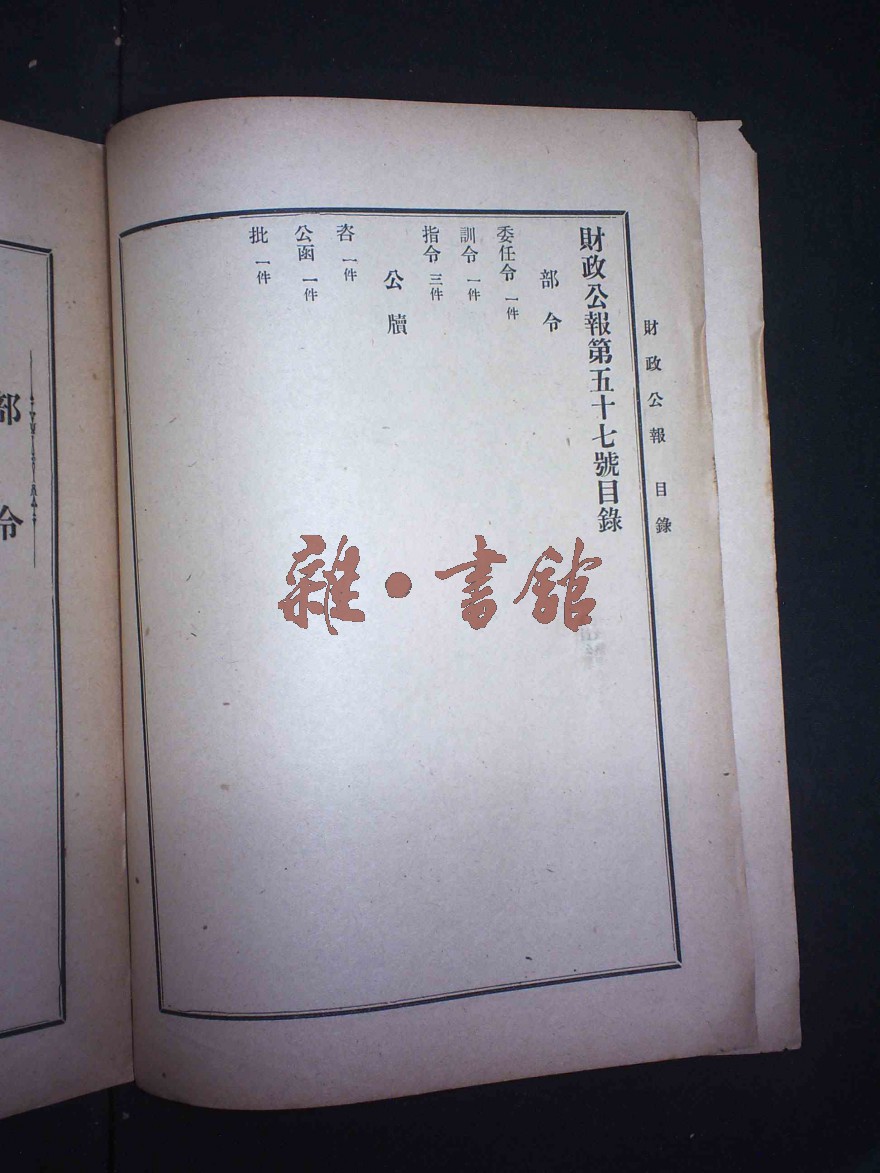 財政公報　目錄
財政公報第五十七號目錄
部令
委任令　一件
訓令　一件
指令　三件
公牘
咨　一件
公函　一件
批　一件
部令
雜·書館